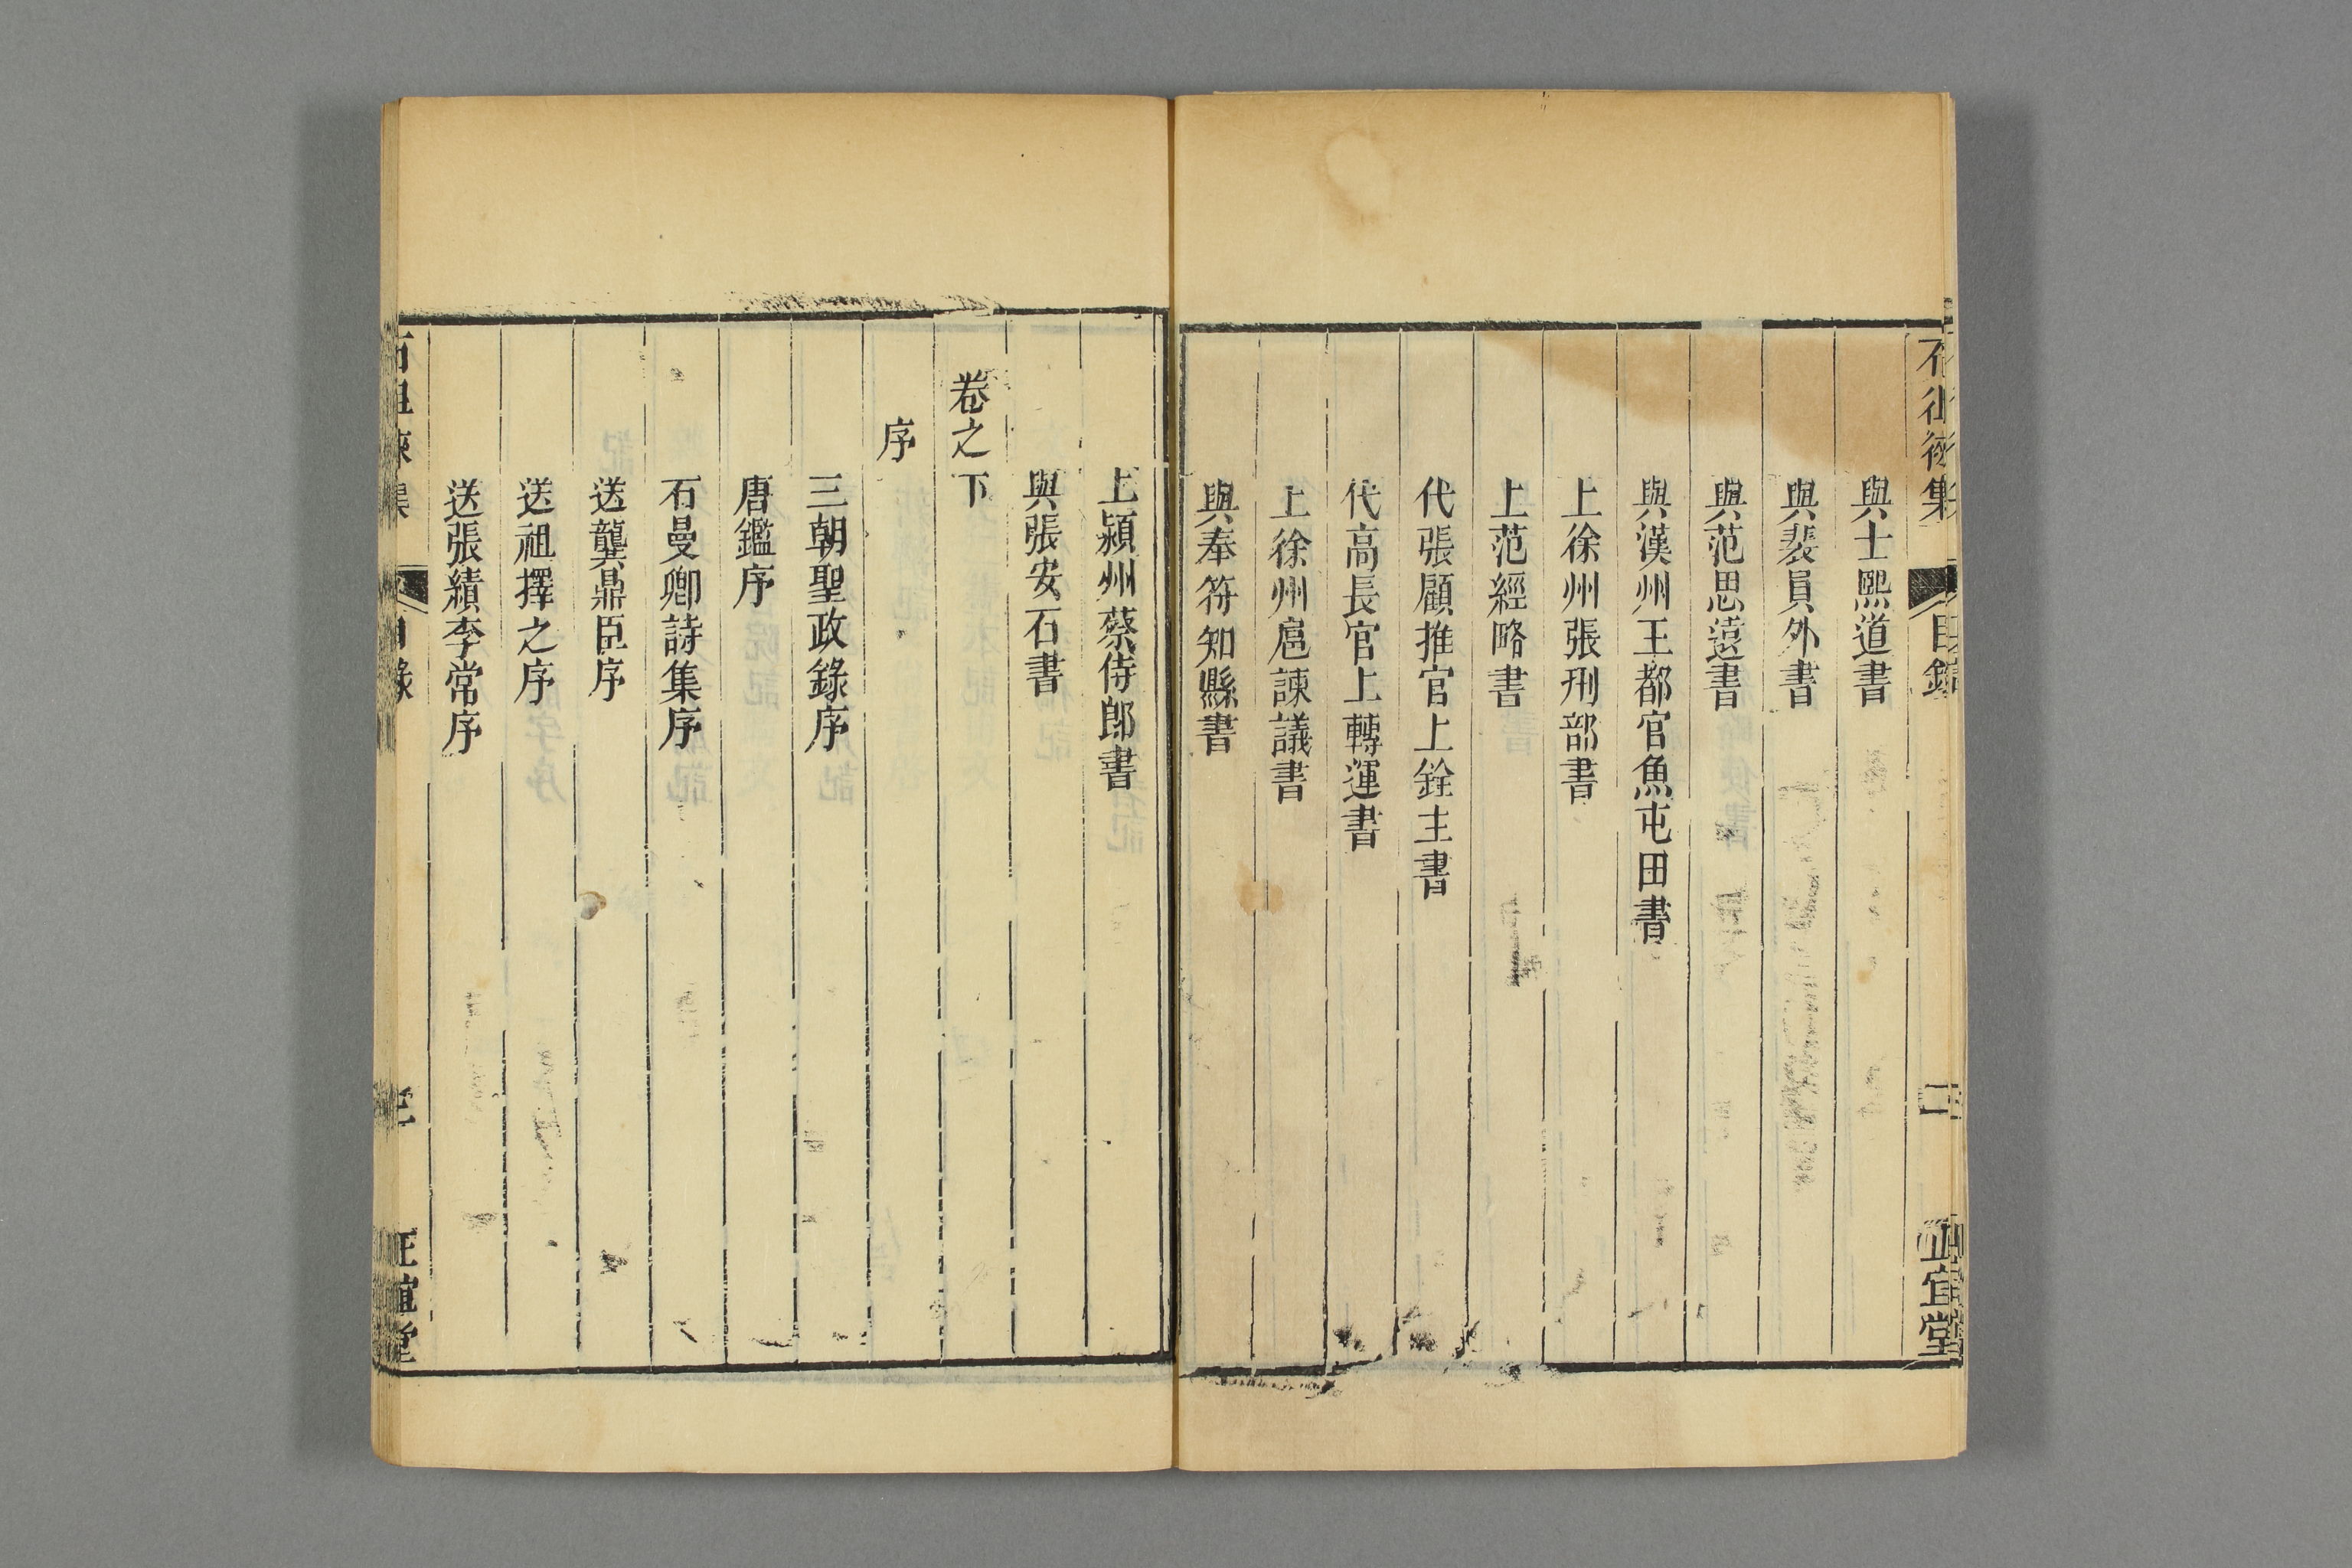 與士熙道書
與裴員外書
與范思遠書
與漢州王都官魚屯田書
上徐州張刑部書
上范經略書
代張顧推官上銓主書
代高長官上轉運書
上徐州扈諫議書
與奉符知縣書
上潁州蔡侍郎書
與張安石書
卷之下
序
三朝聖政錄序
唐鑑序
石曼卿詩集序
送龔鼎臣序
送祖擇之序
送張績李常序